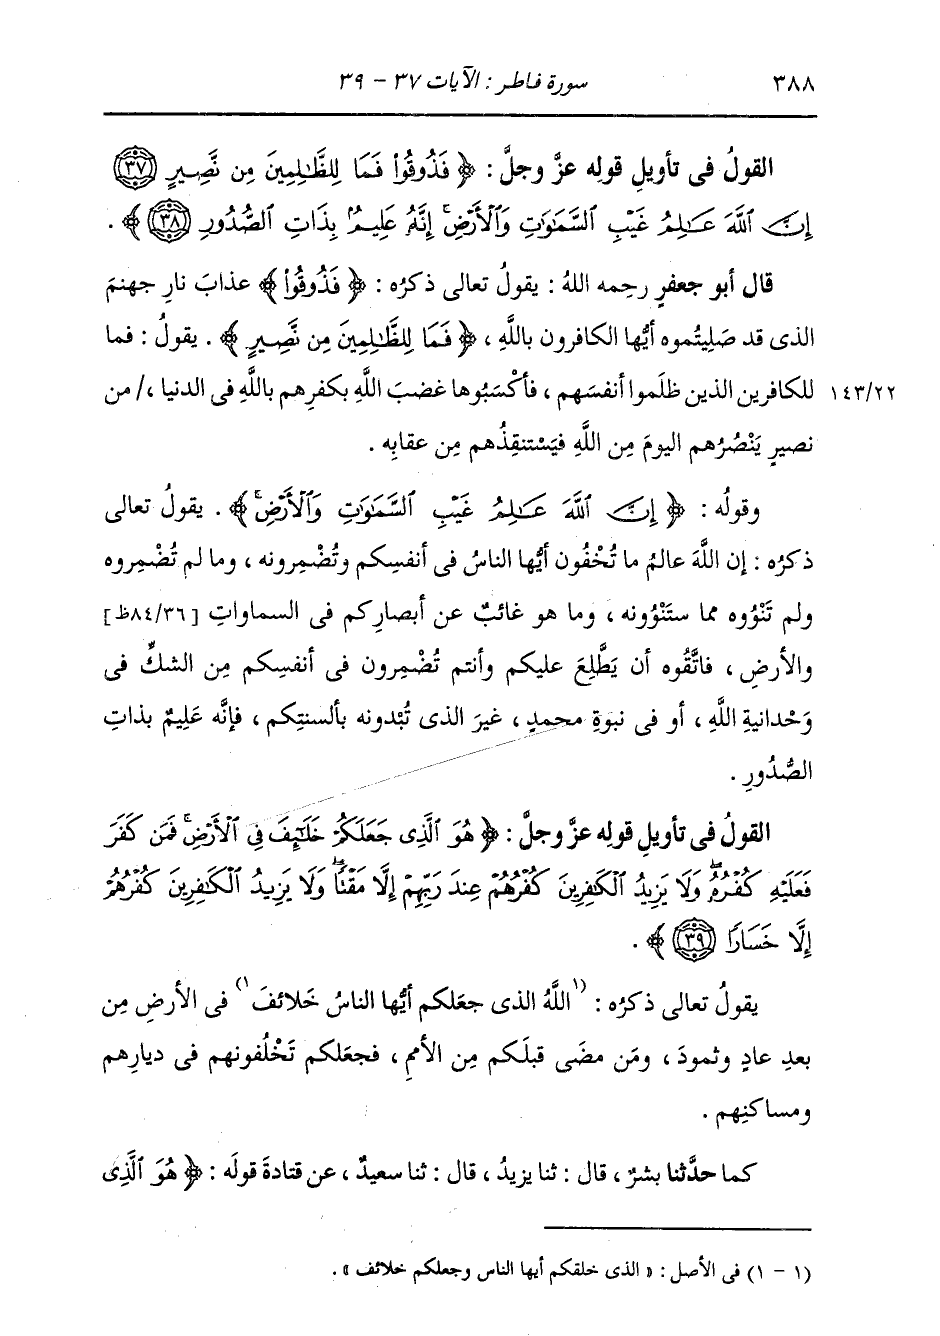 ٣٨٨ سورة فاطر : الآيات ٣٧ - ٣٩
القولُ فى تأويلِ قولِه عزَّ وجلَّ : ﴿ فَذُوقُواْ فَمَا لِلظَّٰلِمِينَ مِن نَّصِيرٍ ﴿٣٧﴾
إِنَّ ٱللَّهَ عَٰلِمُ غَيْبِ ٱلسَّمَٰوَٰتِ وَٱلْأَرْضِۚ إِنَّهُۥ عَلِيمُۢ بِذَاتِ ٱلصُّدُورِ ﴿٣٨﴾ ﴾ .
قال أبو جعفرٍ رحِمه اللهُ : يقولُ تعالى ذكرُه : ﴿ فَذُوقُواْ ﴾ عذابَ نارِ جهنمَ
الذى قد صَلِيتُموه أيُّها الكافرون باللَّهِ ، ﴿ فَمَا لِلظَّٰلِمِينَ مِن نَّصِيرٍ ﴾ . يقولُ : فما
١٤٣/٢٢ للكافرين الذين ظلَموا أنفسَهم ، فأكْسَبُوها غضبَ اللَّهِ بكفرِهم باللَّهِ فى الدنيا ،/ من
نصيرٍ يَنْصُرُهم اليومَ مِن اللَّهِ فيَسْتنقِذُهم مِن عقابِه .
وقولُه : ﴿ إِنَّ ٱللَّهَ عَٰلِمُ غَيْبِ ٱلسَّمَٰوَٰتِ وَٱلْأَرْضِۚ ﴾ . يقولُ تعالى
ذكرُه : إن اللَّهَ عالمُ ما تُخْفُون أيُّها الناسُ فى أنفسِكم وتُضْمِرونه ، وما لم تُضْمِروه
ولم تَنْوُوه مما ستَنْوُونه ، وما هو غائبٌ عن أبصارِكم فى السماواتِ [٨٤/٣٦ظ]
والأرضِ ، فاتَّقُوه أن يَطَّلِعَ عليكم وأنتم تُضْمِرون فى أنفسِكم مِن الشكِّ فى
وَحْدانيةِ اللَّهِ ، أو فى نبوةِ محمدٍ ، غيرَ الذى تُبْدونه بألسنتِكم ، فإنَّه عَلِيمٌ بذاتِ
الصُّدُورِ .
القولُ فى تأويلِ قولِه عزَّ وجلَّ : ﴿ هُوَ ٱلَّذِى جَعَلَكُمْ خَلَٰٓئِفَ فِى ٱلْأَرْضِۚ فَمَن كَفَرَ
فَعَلَيْهِ كُفْرُهُۥۖ وَلَا يَزِيدُ ٱلْكَٰفِرِينَ كُفْرُهُمْ عِندَ رَبِّهِمْ إِلَّا مَقْتًاۖ وَلَا يَزِيدُ ٱلْكَٰفِرِينَ كُفْرُهُمْ
إِلَّا خَسَارًا ﴿٣٩﴾ ﴾ .
يقولُ تعالى ذكرُه : (١اللَّهُ الذى جعَلكم أيُّها الناسُ خَلائفَ١) فى الأرضِ مِن
بعدِ عادٍ وثمودَ ، ومَن مضَى قبلَكم مِن الأممِ ، فجعَلكم تَخْلُفونهم فى ديارِهم
ومساكنِهم .
كما حدَّثنا بشرٌ ، قال : ثنا يزيدُ ، قال : ثنا سعيدٌ ، عن قتادةَ قولَه : ﴿ هُوَ ٱلَّذِى
(١ - ١) فى الأصل : « الذى خلقكم أيها الناس وجعلكم خلائف » .